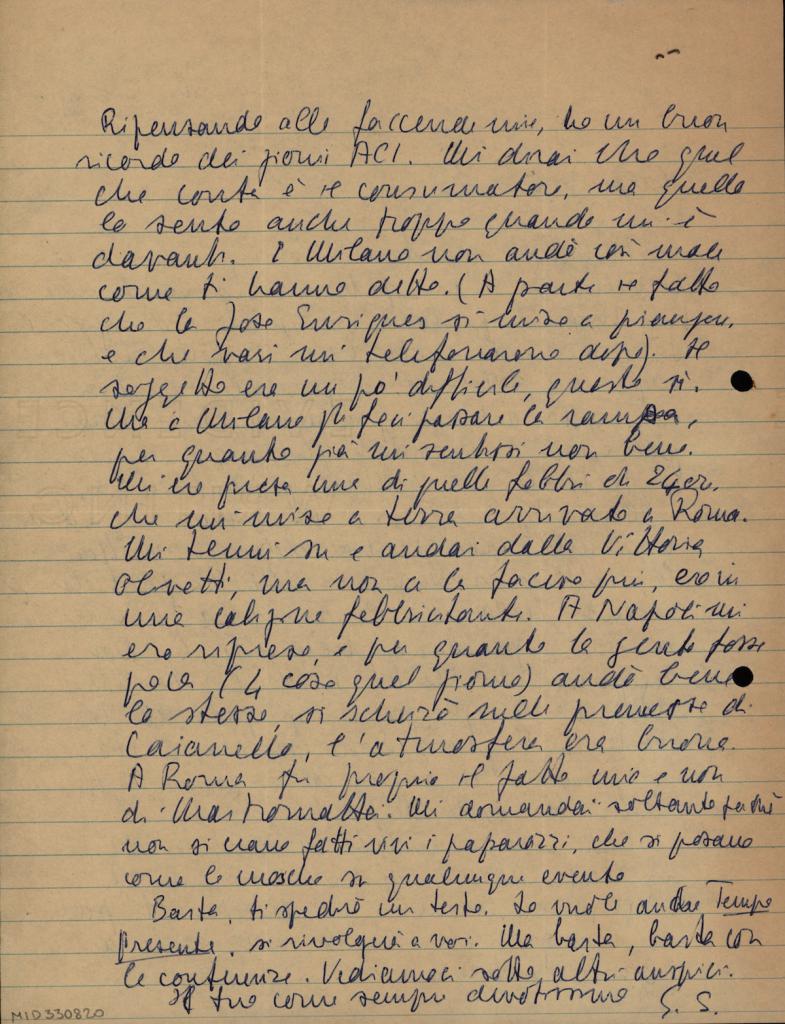 Ripensando alle faccende mie, ho un buon
ricordo dei giorni ACI. Mi dirai che quel
che conta è il consumatore, ma quello
lo sento anche troppo quando mi è
davanti. E Milano non andò così male
come ti hanno detto. (A parte il fatto
che la Jose Enriques si mise a piangere,
e che vari mi telefonarono dopo). Il
soggetto era un po' difficile, questo sì.
Ma a Milano gli feci passare la rampa,
per quanto già mi sentissi non bene.
Mi ero presa una di quelle febbri di 24 ore,
che mi mise a terra arrivato a Roma.
Mi tenni su e andai dalla Vittoria
Olivetti, ma non ce la facevo più, ero in
una caligine febbricitante. A Napoli mi
ero ripreso, e per quanto la gente fosse
poca (4 cose quel giorno) andò bene
lo stesso, si scherzò sulle premesse di
Caianello, l'atmosfera era buona.
A Roma fu proprio il fatto mio e non
di Mastromattei. Mi domandai soltanto perché
non si erano fatti vivi i paparazzi, che si posano
come le mosche su qualunque evento
Basta, ti spedirò un testo. Lo vuole anche Tempo
Presente, si rivolgerà a voi. Ma basta, basta con
le conferenze. Vediamoci sotto altri auspici.
Il tuo come sempre devotissimo G. S.
MID330820